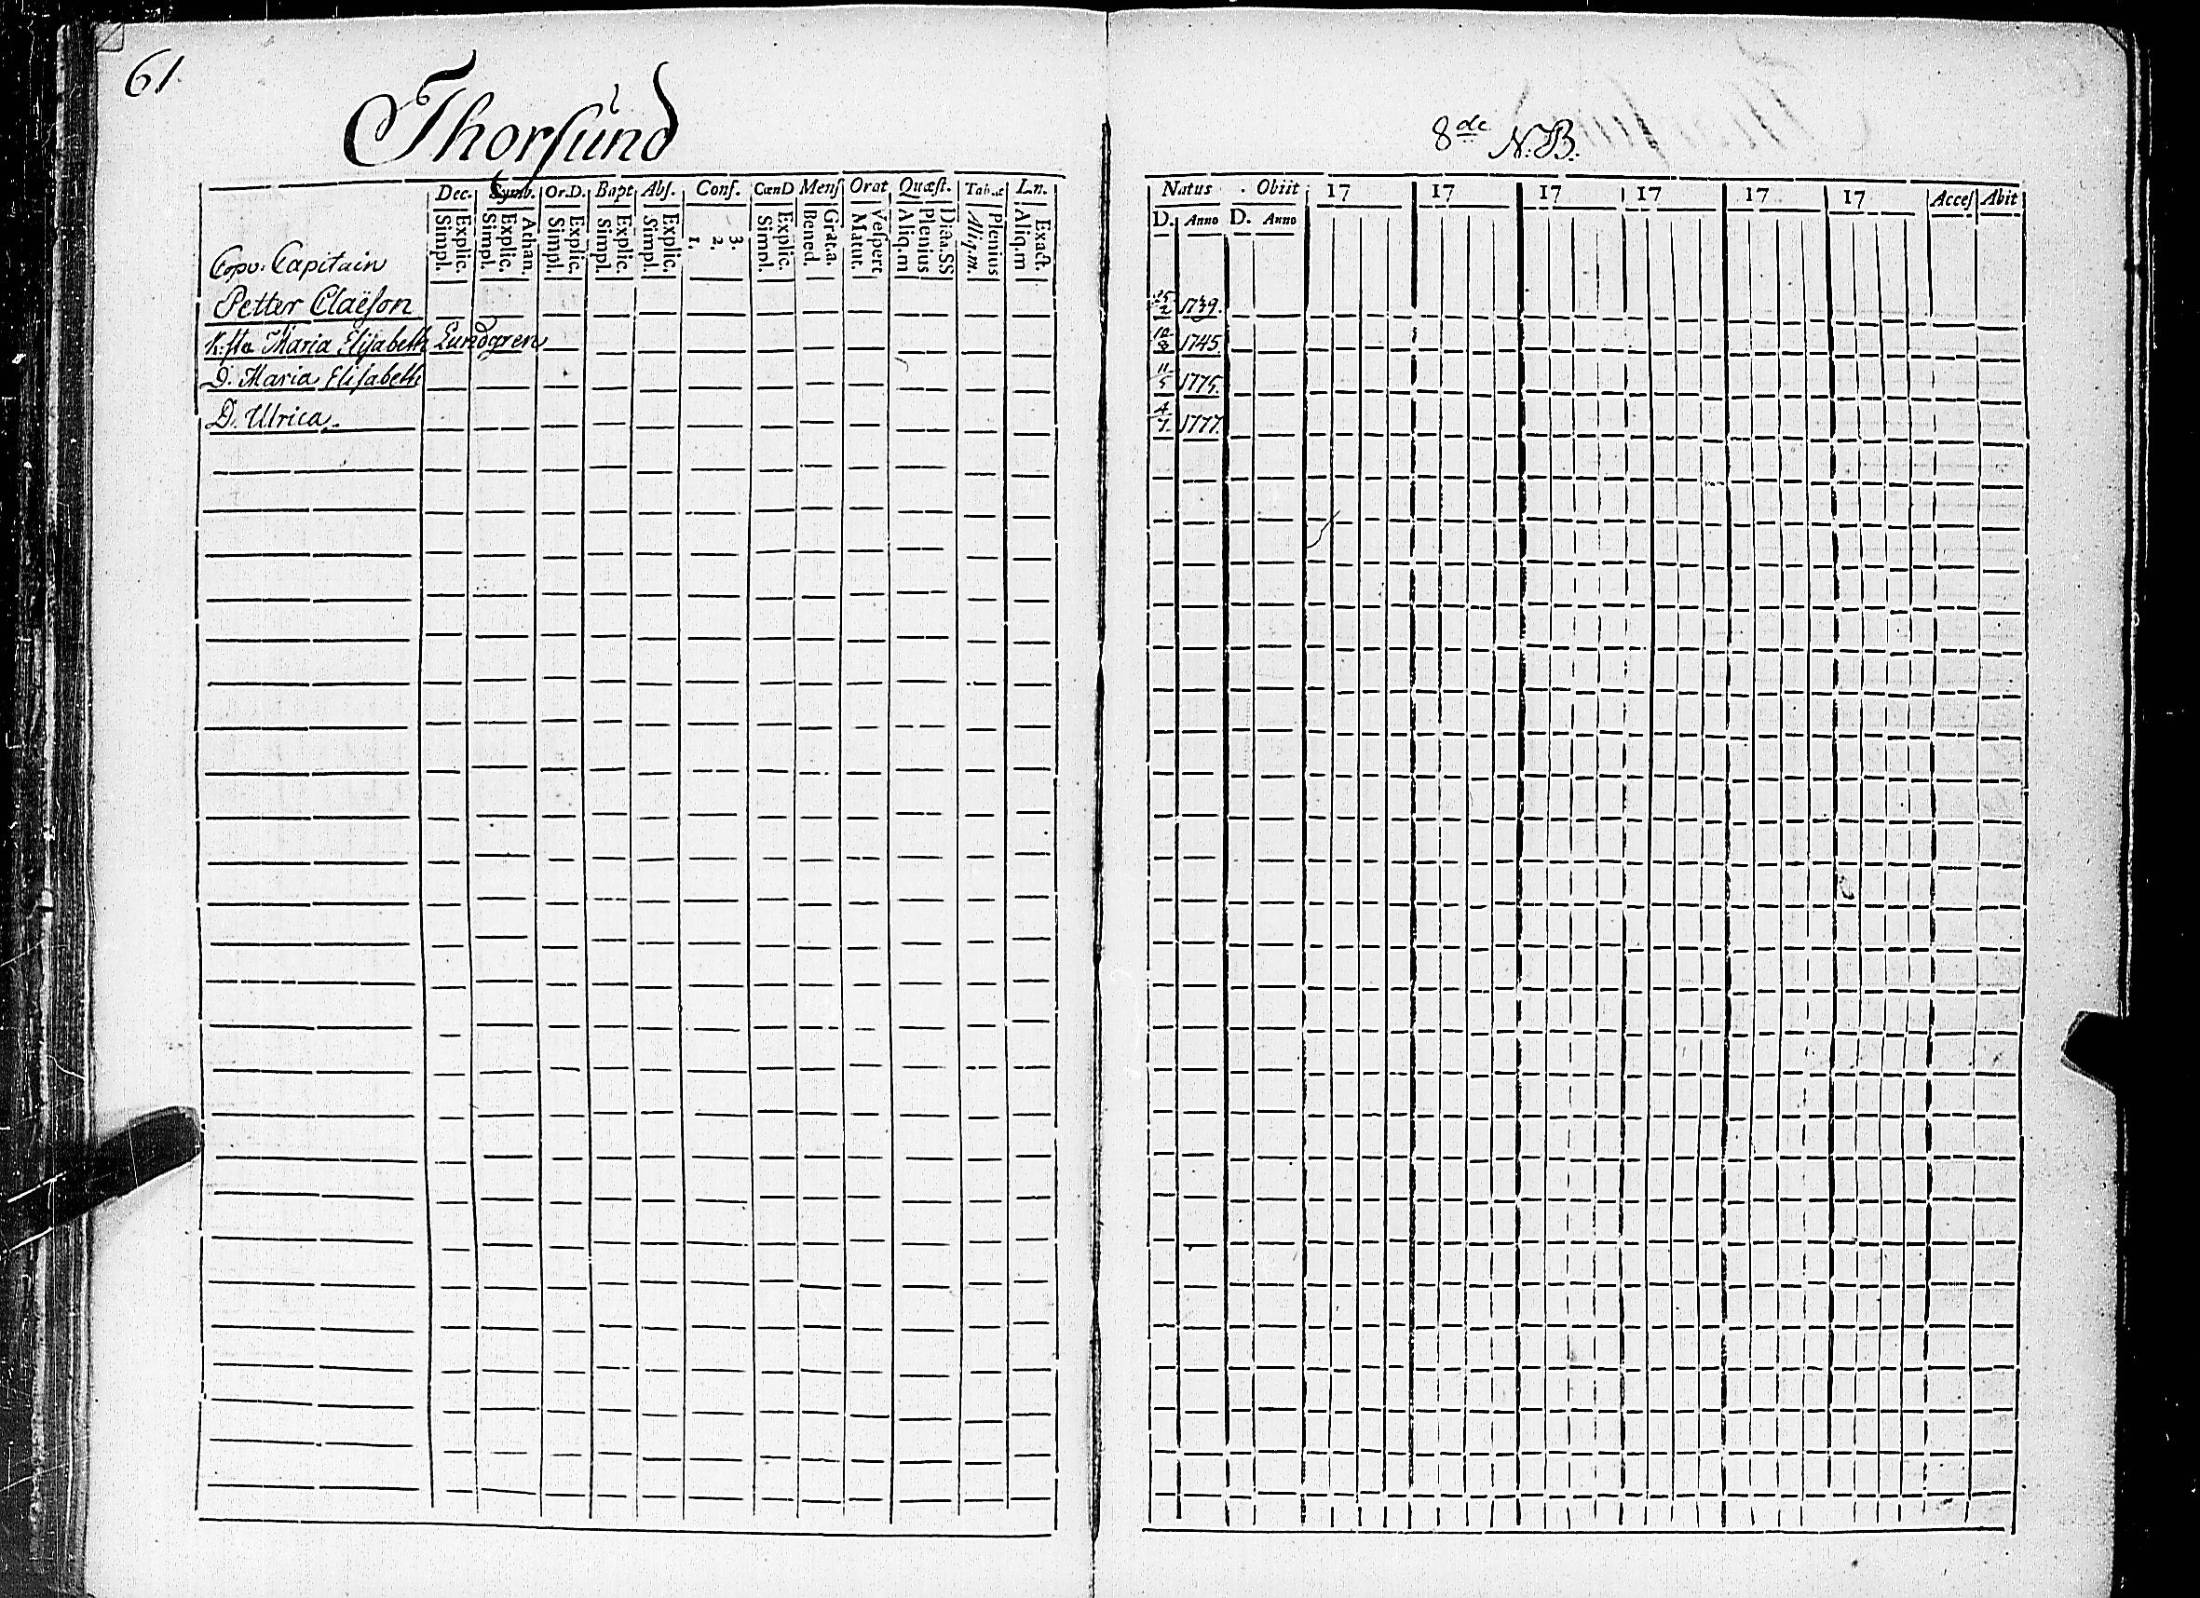 61.
Thorsund
8de N.B.
Dec. Symb. Or.D. Bapt Abs. Conf. CœnD Mens Orat Quæst. L.n.
Simpl. Explic. Simpl. Explic. Athan. Simpl. Explic. Simpl. Explic. Simpl. Explic. 1. 2. 3. Simpl. Explic. Bened. Grat.a. Matut. Vespert Aliq.m Plenius Aliq.m. Plenius Aliq.m Exact.
Capitain
Petter Claëson
H:stu Maria Elisabeth Lundgren
D. Maria Elisabeth
D. Ulrica.
Natus Obiit 17 17 17 17 17 17 Acces Abit
D. Anno D. Anno
25/2 1739.
10/8 1745.
11/5 1775.
4/7. 1777.